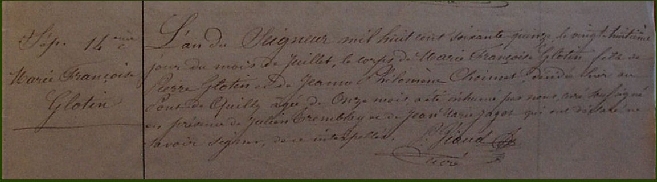 Sép. 14ème
Marie Françoise
Glotin
L'an du Seigneur mil huit cent soixante quinze, le vingt huitième
jour du mois de Juillet, le corps de Marie Françoise Glotin fille de
Pierre Glotin et de Jeanne Philomène décédée hier au
Pont de Quilly agée de Onze mois a été inhumé par nous
en présence de Julien Tremblay et de Jean Marie Jagot qui ont déclaré ne
savoir signer, de ce interpellés